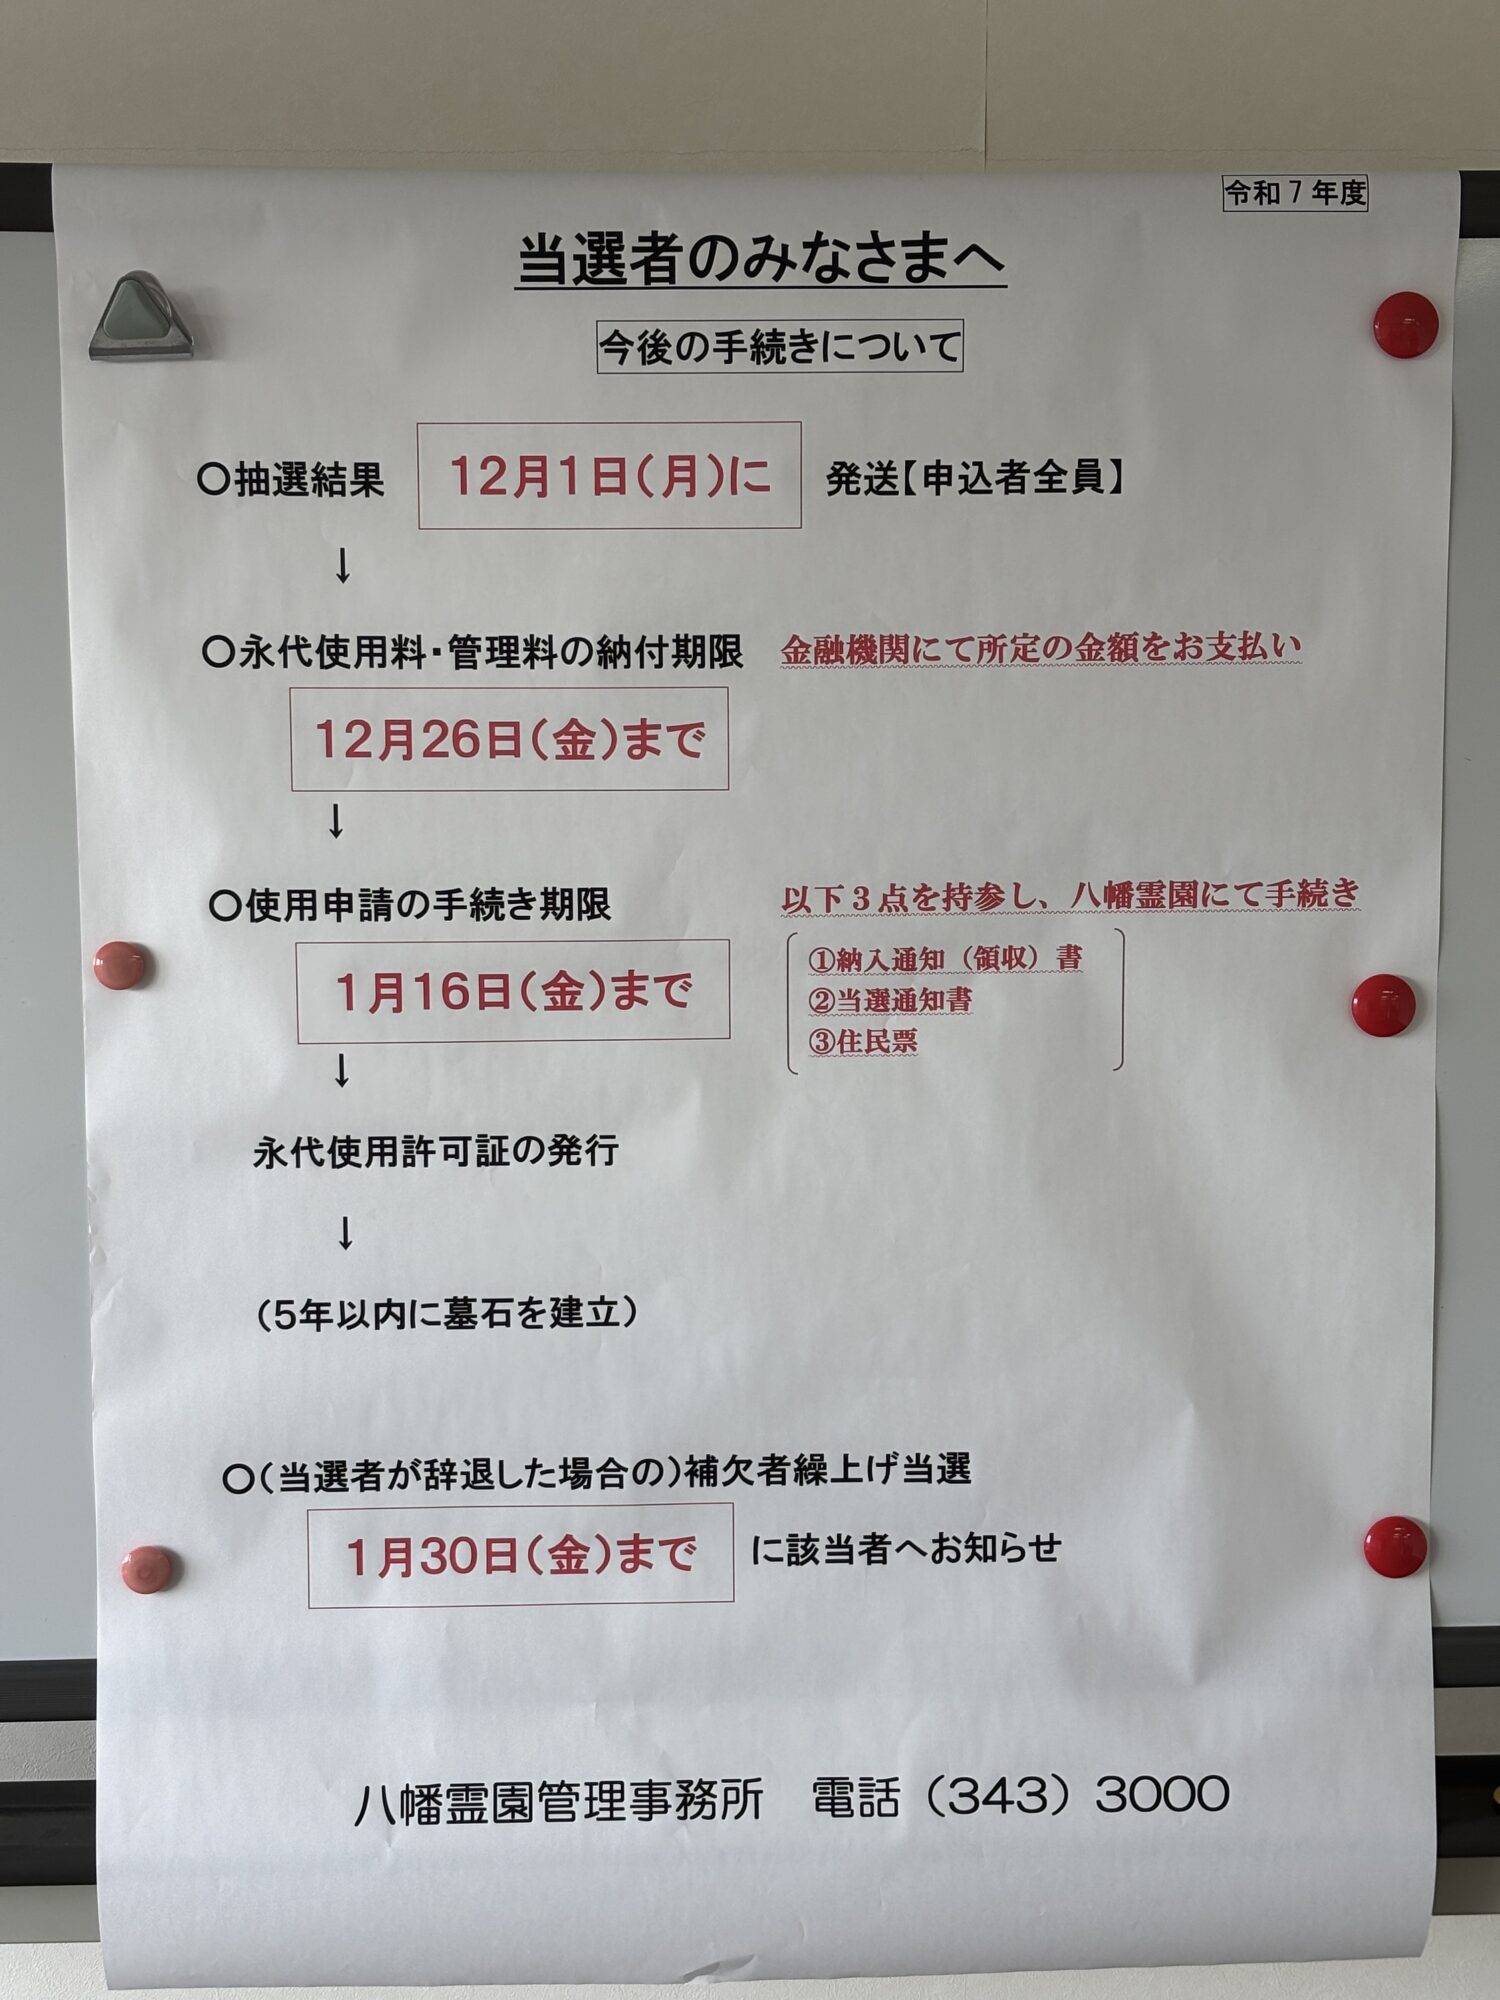 令和７年度
当選者のみなさまへ
今後の手続きについて
〇抽選結果 12月1日(月)に 発送【申込者全員】
↓
〇永代使用料・管理料の納付期限 金融機関にて所定の金額をお支払い
12月26日(金)まで
↓
〇使用申請の手続き期限 以下３点を持参し、八幡霊園にて手続き
1月16日(金)まで ①納入通知（領収）書
②当選通知書
③住民票
↓
永代使用許可証の発行
↓
(5年以内に墓石を建立)
〇(当選者が辞退した場合の)補欠者繰上げ当選
1月30日(金)まで に該当者へお知らせ
八幡霊園管理事務所　電話（343）3000